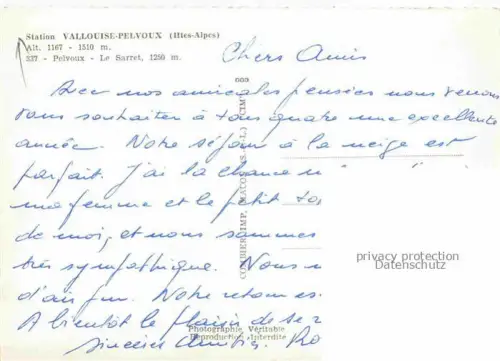 Station VALLOUISE-PELVOUX (Htes-Alpes)
Alt. 1167 - 1510 m.
537. - Pelvoux - Le Sarret, 1250 m.
Chers Amis
Avec nos amicales pensées nous venons
vous souhaiter à tous quatre une excellente
année. Notre séjour à la neige est
parfait. J'ai la chance
ma femme et le petit
de moi, et nous sommes
très sympathique. Nous
d'air pur. Notre retour
A bientôt le plaisir de
sincères
COMBIER IMP. MACON (S.-L.) CIM
Photographie Véritable
Reproduction Interdite
privacy protection
Datenschutz